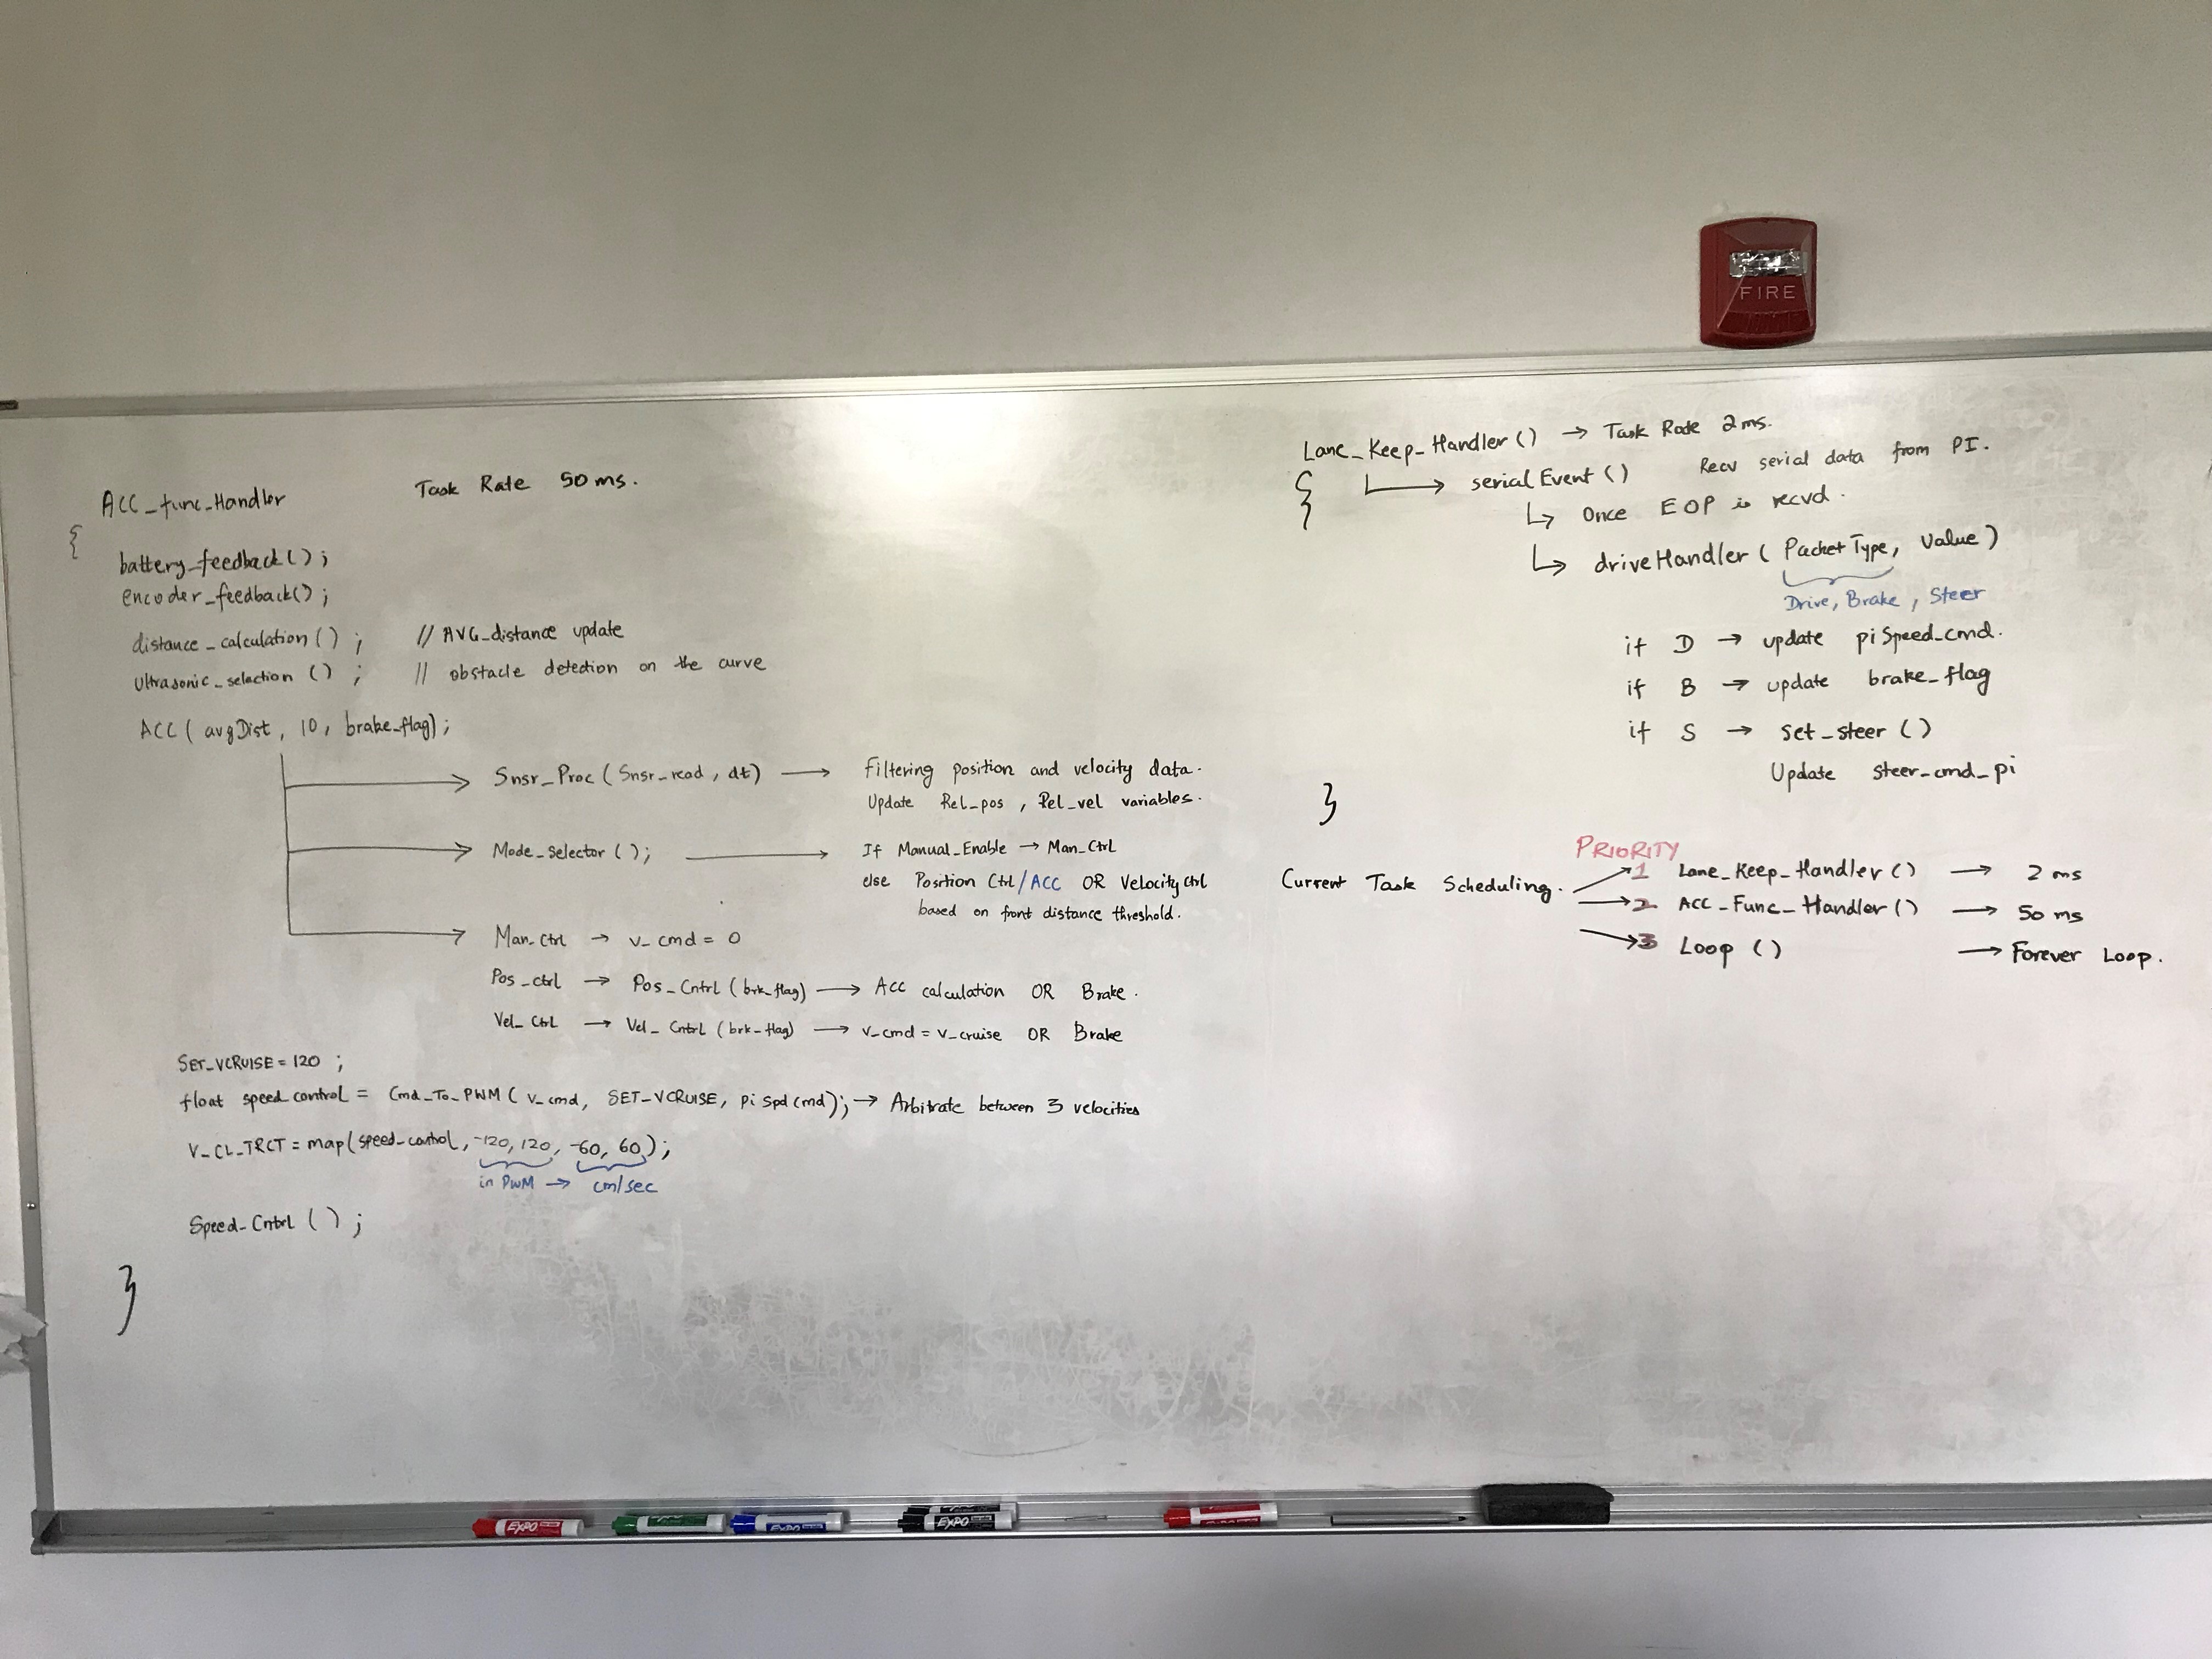 FIRE
ACC_func_Handler Task Rate 50 ms.
{
battery_feedback();
encoder_feedback();
distance_calculation() ; // AVG_distance update
Ultrasonic_selection () ; // obstacle detection on the curve
ACC( avgDist, 10, brake_flag);
Snsr_Proc (Snsr_read, dt) → Filtering position and velocity data.
Update Rel_pos, Rel_vel variables.
Mode_selector (); → If Manual_Enable → Man_Ctrl
else Position Ctrl/ACC OR Velocity Ctrl
based on front distance threshold.
Man_Ctrl → v_cmd = 0
Pos_ctrl → Pos_Cntrl (brk_flag) → ACC calculation OR Brake.
Vel_Ctrl → Vel_Cntrl (brk_flag) → v_cmd = v_cruise OR Brake
SET_VCRUISE = 120 ;
float speed_control = Cmd_To_PWM ( v_cmd, SET_VCRUISE, piSpdCmd); → Arbitrate between 3 velocities
V_CL_TRCT = map(speed_control, -120, 120, -60, 60);
in PWM → cm/sec
Speed_Cntrl ( ) ;
}
Lane_Keep_Handler () → Task Rate 2 ms.
{ → serialEvent () Recv serial data from PI.
↳ Once EOP is recvd.
↳ driveHandler ( Packet Type, Value )
Drive, Brake, Steer
if D → update piSpeed_cmd.
if B → update brake_flag
if S → set_steer ()
Update steer_cmd_pi
}
PRIORITY
Current Task Scheduling. → 1 Lane_Keep_Handler () → 2 ms
→ 2 ACC_Func_Handler () → 50 ms
→ 3 Loop () → Forever Loop.
EXPO
EXPO